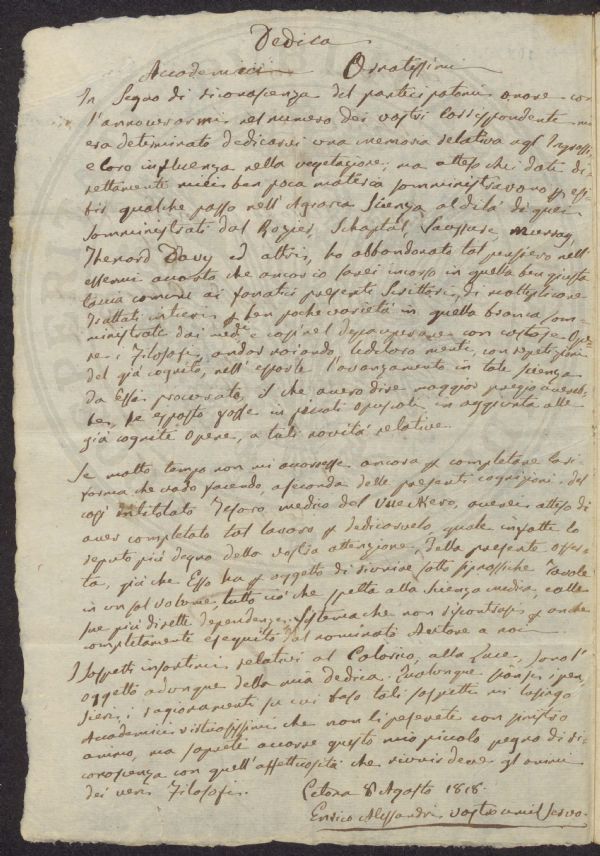 Dedica
Accademici Ornatissimi
In Segno di riconoscenza del partecipatomi onore con
l'annoverarmi nel numero dei vostri Corrispondente mi
era determinato dedicarvi una memoria relativa agl'Ingrassi,
e loro influenza nella vegetazione; ma atteso che date di-
rettamente ben poca materia somministravano
qualche passo nell'Agraria Scienza al di là di quei
somministrati dal Rozier, Schaptal, Saussure, Murray,
Thenard Davy ed altri, ho abbandonato tal pensiero nell'
essermi accorto che ancor io sarei incorso in quella ben giusta
taccia comune ai fanatici presenti Scrittori, di moltiplicare
Trattati interi ben poche varietà in quella branca som-
ministrate dai med.i e così nel depauperare con costose Ope-
re i Filosofi, andar noiando le loro menti, con repetizioni
del già cognito, nell'esporre l'avanzamento in tale scienza
da Essi procurato, il che a vero dire maggior pregio avereb-
be, se esposto fosse in piccoli opuscoli in aggiunta alle
già cognite Opere, a tali novità relative.
Se molto tempo non mi accorresse ancora completare la ri
forma che vado facendo, a seconda delle presenti cognizioni, del
così intitolato Tesoro medico del averei atteso di
aver completato tal lavoro dedicarvelo quale infatti lo
reputo più degno della vostra attenzione, della presente offer-
ta, già che Esso ha oggetto di riunire sotto Tavole
in un sol volume, tutto ciò che spetta alla scienza medica, colle
sue più dirette dependenze; Sistema che non anche
completamente eseguito dal nominato Autore a noi
I Sospetti insortimi relativi al Calorico, alla Luce sono l'
oggetto adunque della mia dedica. Qualunque siansi i pen-
sieri, i ragionamenti su cui baso tali sospetti mi lusingo
Accademici virtuosissimi che non li peserete con sinistro
animo, ma saprete accorre questo mio piccolo pegno di ri-
conoscenza con quell'affettuosità che riunir deve gl'animi
dei veri Filosofi.
Cetona 8 Agosto 1818.
Enrico Alessandri vostro umil Servo.